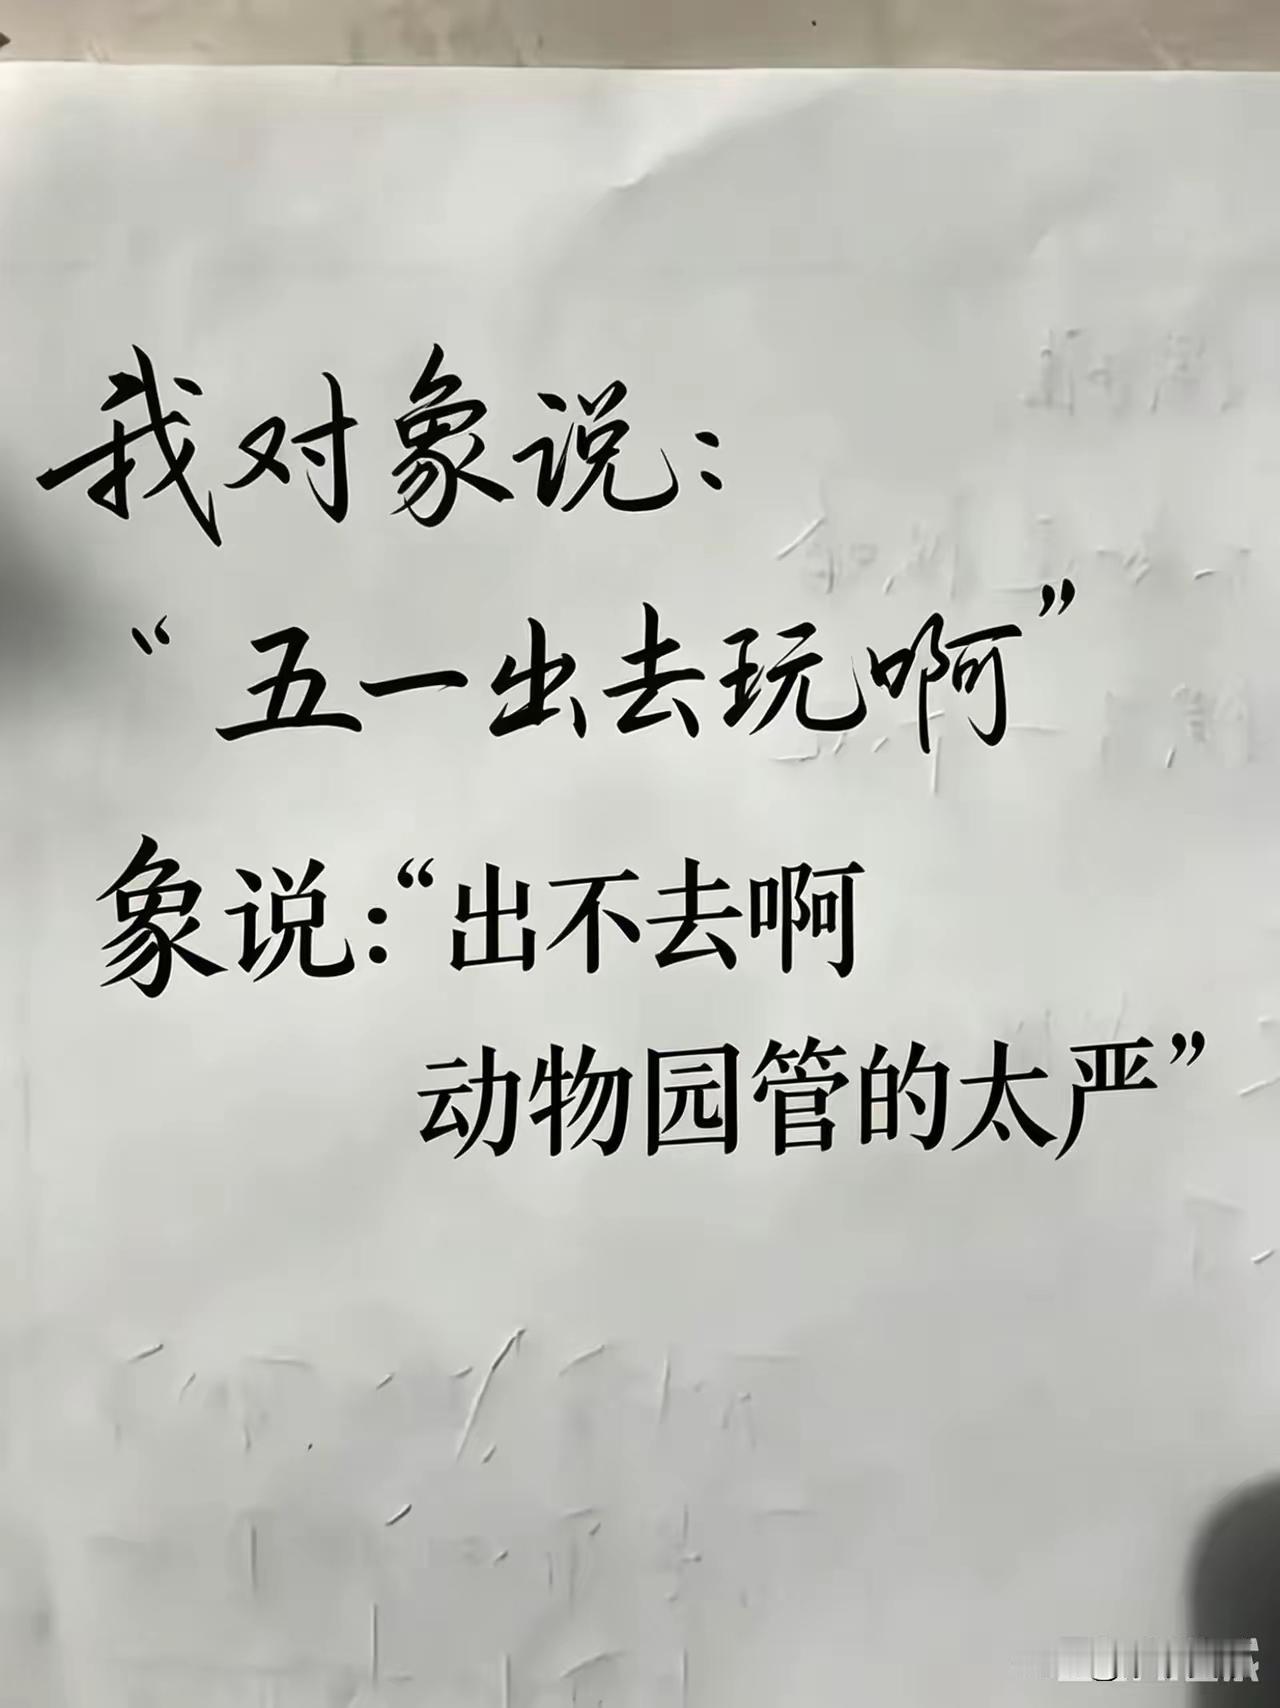 我对象说：
“五一出去玩啊”
象说：“出不去啊
动物园管的太严”